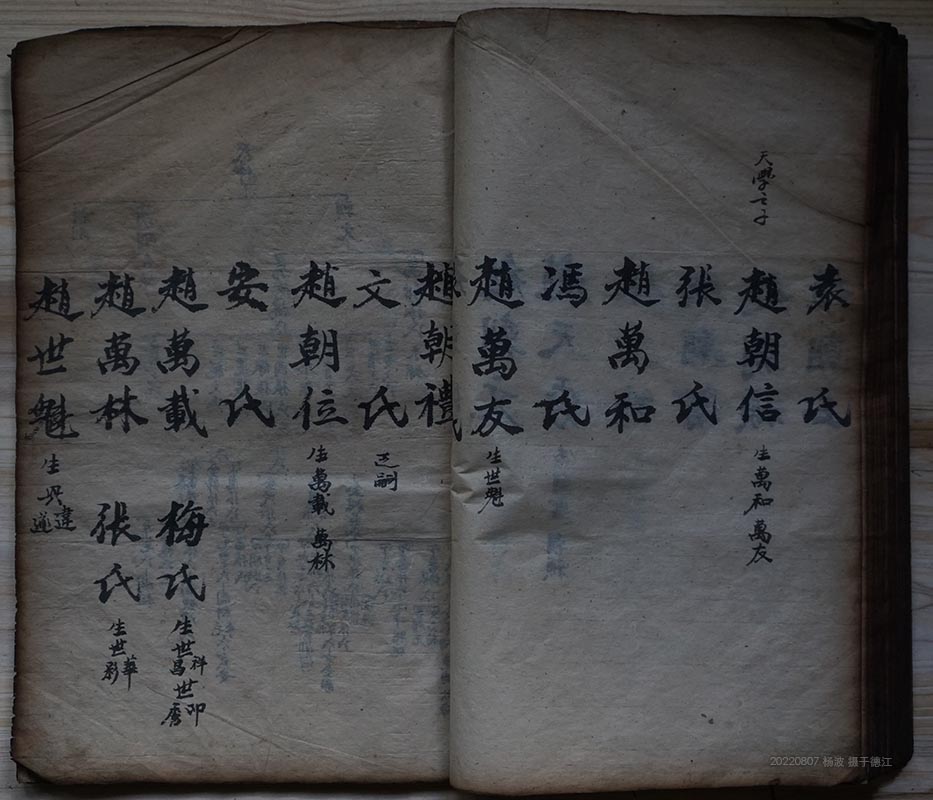 袁氏
天學之子
趙朝信 生萬和 萬友
張氏
趙萬和
馮氏
趙萬友 生世魁
趙朝禮
文氏 乏嗣
趙朝位 生萬載 萬林
安氏
趙萬載 梅氏 生世昌 祥 世 卯
趙萬林 張氏 生世彩 華
趙世魁 生興 達 道
20220807 杨波 摄于德江